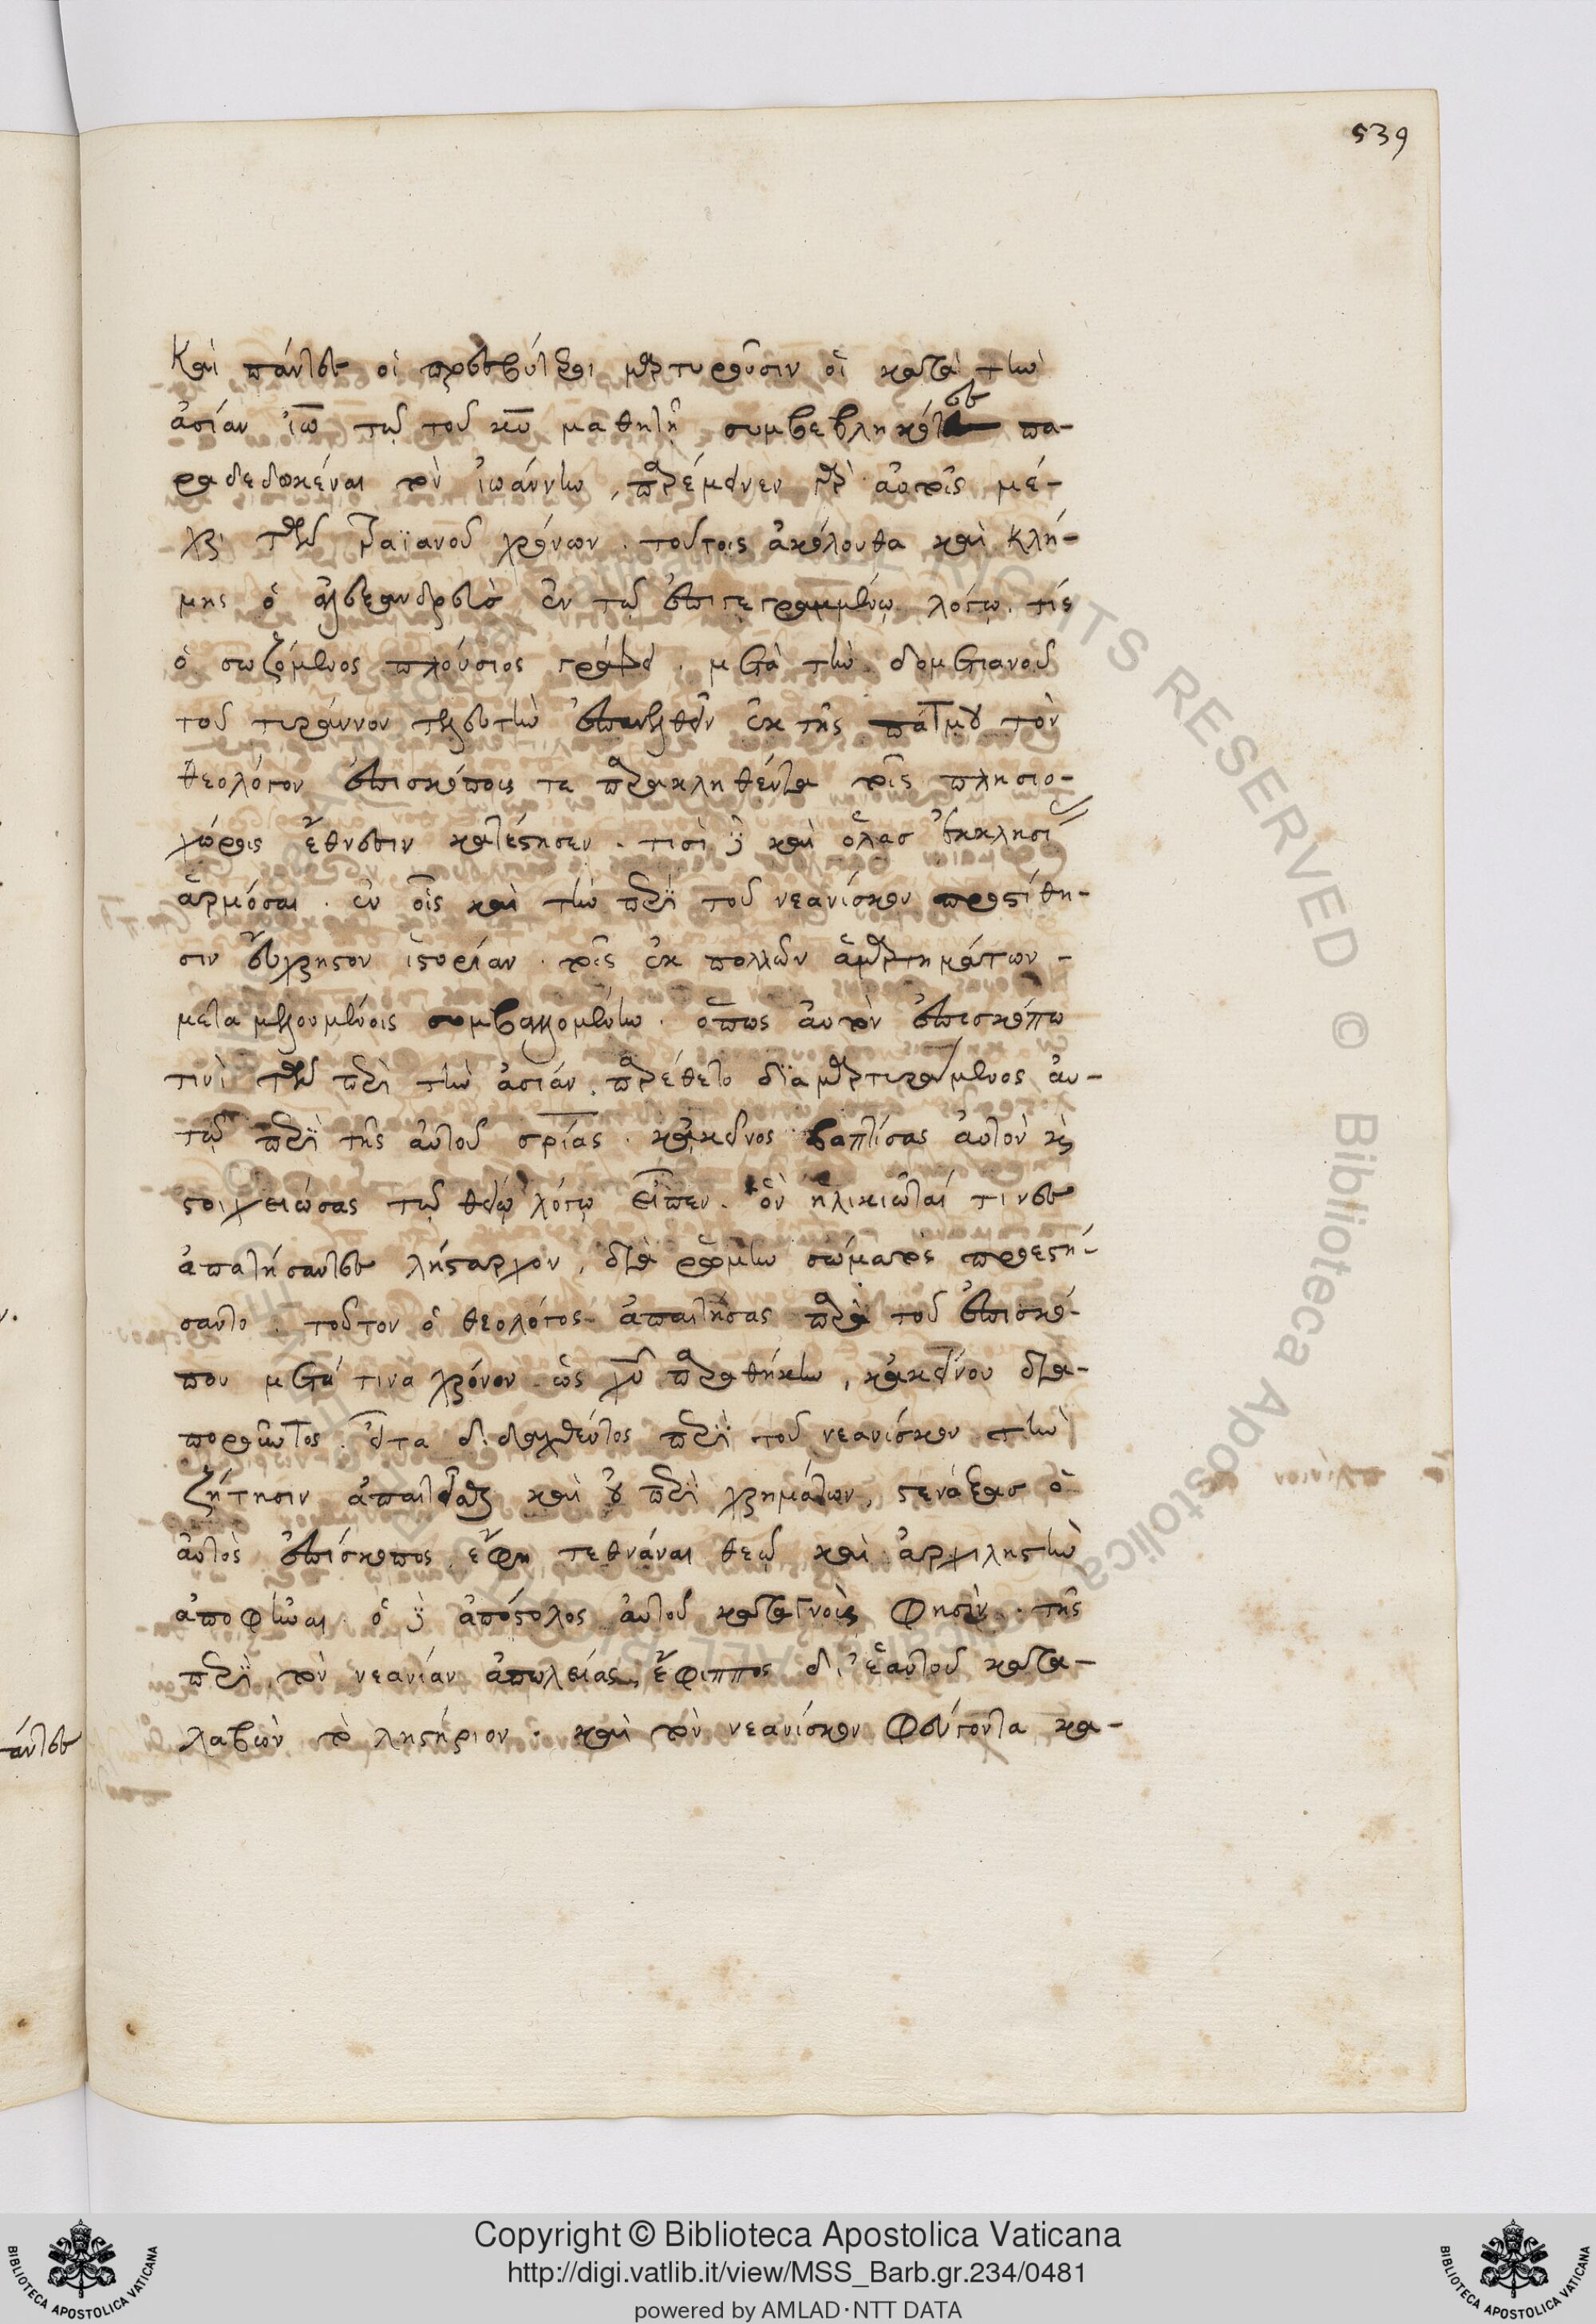 539
Καὶ πάντες οἱ πρεσβύτεροι μαρτυροῦσιν οἱ κατὰ τὴν
ἀσίαν ἰω τῷ τοῦ κυ μαθητῇ συμβεβληκότες πα-
ραδεδωκέναι τὸν ἰωάννην, παρέμεινεν γὰρ αὐτοῖς μέ-
χρι τῶν τραϊανοῦ χρόνων. τούτοις ἀκόλουθα καὶ Κλή-
μης ὁ ἀλεξανδρεὺς ἐν τῷ ἐπιγεγραμμένῳ λόγῳ. τίς
ὁ σωζόμενος πλούσιος γράφει. μετὰ τὴν δομετιανοῦ
τοῦ τυράννου τελευτὴν ἐπανελθεῖν ἐκ τῆς πάτμου τὸν
θεολόγον ἐπισκόπους τε παρακληθέντα τοῖς πλησιο-
χώροις ἔθνεσιν κατέστησεν. τισὶ δὲ καὶ ὅλας ἐκκλησί
ἁρμόσαι. ἐν οἷς καὶ τὴν περὶ τοῦ νεανίσκου προστίθη-
σιν εὔχρηστον ἱστορίαν. τοῖς ἐκ πολλῶν ἁμαρτημάτων-
μεταμελουμένοις συμβαλλομένην. ὅπως αὐτὸν ἐπισκόπω
τινὶ τῶν περὶ τὴν ἀσίαν. παρέθετο διαμαρτυρούμενος αὐ-
τῷ περὶ τῆς αὐτοῦ σριας. κἀκεῖνος βαπτίσας αὐτὸν κὶ
στοιχειώσας τῷ θείῳ λόγῳ εἶπεν. ὃν ἡλικιῶταί τινες
ἀπατήσαντες λήσταρχον, διὰ ῥώμην σώματος προεστή-
σαντο. τοῦτον ὁ θεολόγος ἀπαιτήσας παρὰ τοῦ ἐπισκό-
που μετά τινα χρόνον ὡς χυ παραθήκην, κἀκείνου δια-
ποροῦντος. εἶτα διδαχθέντος περὶ τοῦ νεανίσκου τὴν
ζήτησιν ἀπαιτεῖσθαι καὶ οὐ περὶ χρημάτων, στενάξας ὁ
αὐτὸς ἐπίσκοπος ἔφη τεθνάναι θεῷ καὶ ἀρχιληστὴν
ἀποφῆναι. ὁ δὲ ἀπόστολος αὐτοῦ καταγνοὺς φησὶν. τῆς
περὶ τὸν νεανίαν ἀπωλείας, ἔφιππος δι' ἑαυτοῦ κατα-
λαβὼν τὸ ληστήριον. καὶ τὸν νεανίσκον φεύγοντα κα-
Copyright © Biblioteca Apostolica Vaticana
http://digi.vatlib.it/view/MSS_Barb.gr.234/0481
powered by AMLAD·NTT DATA